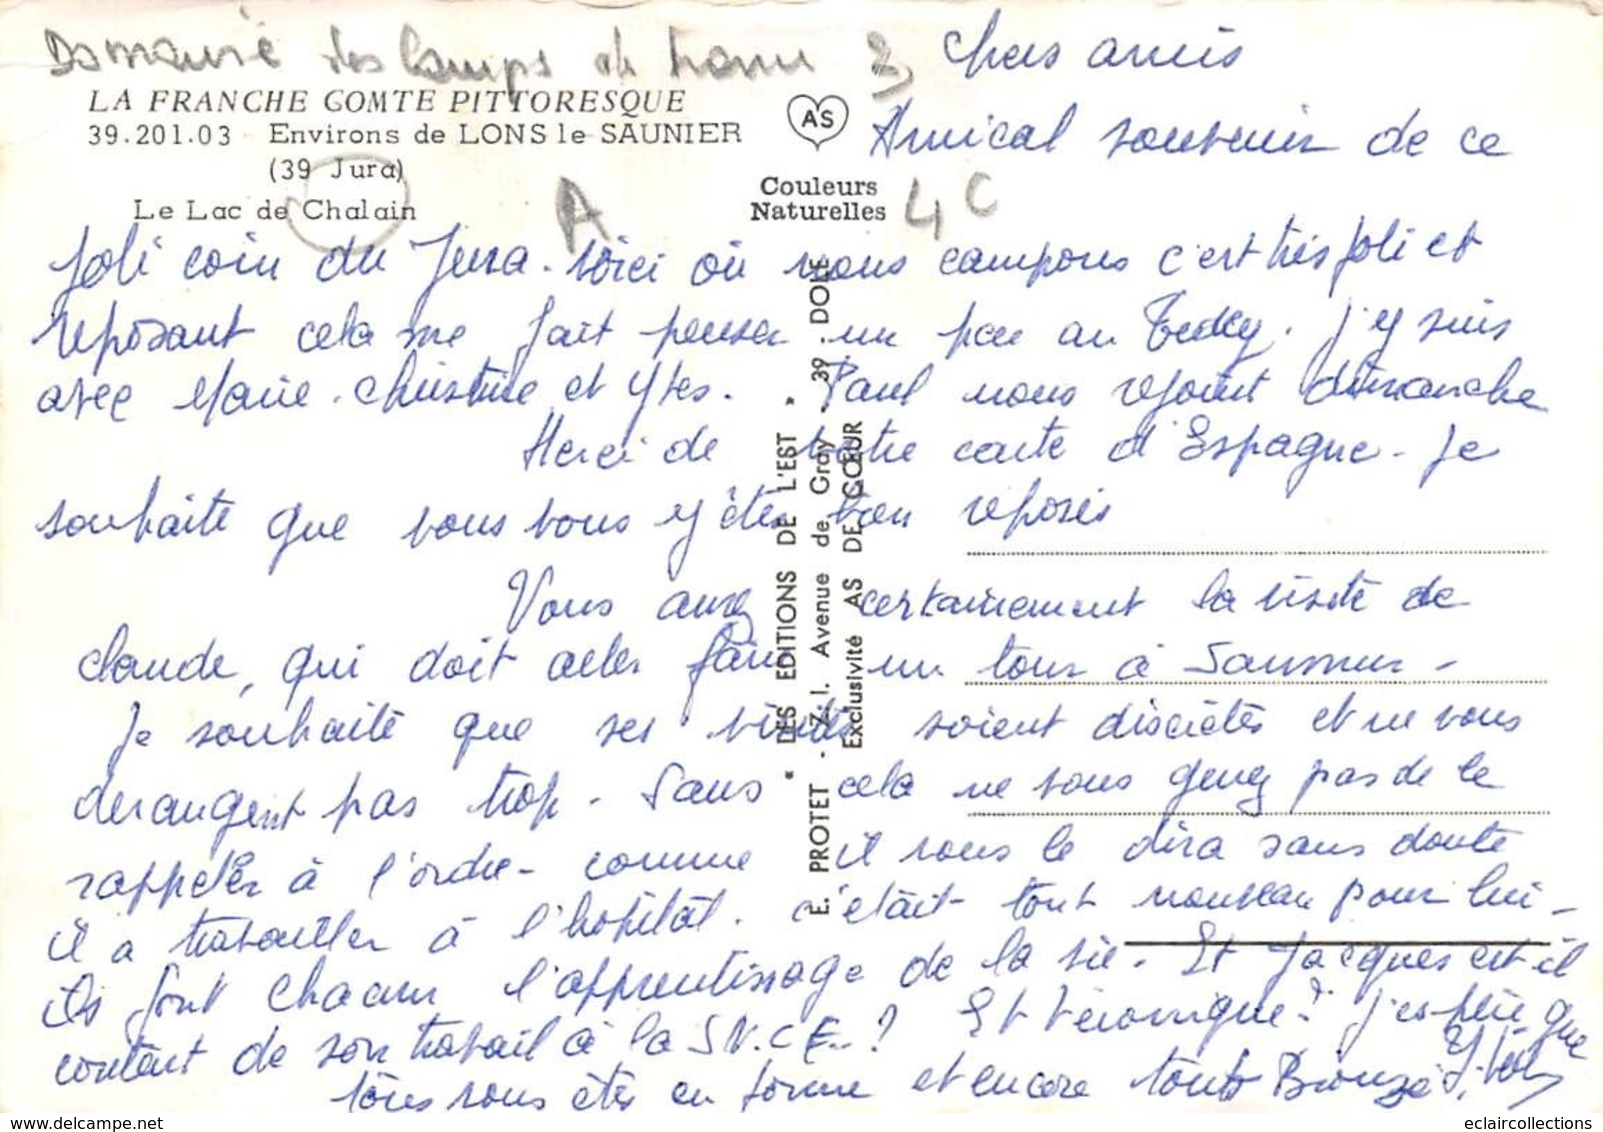 LA FRANCHE COMTE PITTORESQUE
39.201.03 - Environs de LONS le SAUNIER
(39 Jura)
Le Lac de Chalain
AS
Couleurs
Naturelles
A
4 C
E. PROTET - Z. I. Avenue de Gray - 39 - DOLE
" DES EDITIONS DE L'EST "
Exclusivité AS DE CŒUR
Chers amis
Amical souvenir de ce
joli coin du Jura. Voici où nous campons c'est très joli et
reposant cela me fait penser un peu au. J'y suis
avec Marie-Christine et Yves. Paul nous rejoint dimanche
Merci de votre carte d'Espagne - Je
souhaite que vous vous y êtes bien reposés
Vous aurez certainement la visite de
Claude, qui doit aller faire un tour à Saumur -
Je souhaite que ses visites soient discrètes et ne vous
derangent pas trop. Sans cela ne vous genez pas de le
rappeler à l'ordre - comme il vous le dira sans doute
il a travailler à l'hôpital. c'était tout nouveau pour lui -
ils font chacun l'apprentissage de la vie. Et Jacques est il
content de son travail à la S.N.C.F. ? Et Véronique ? J'espère que
tous vous êtes en forme et encore tout Bronzé
eclaircollections